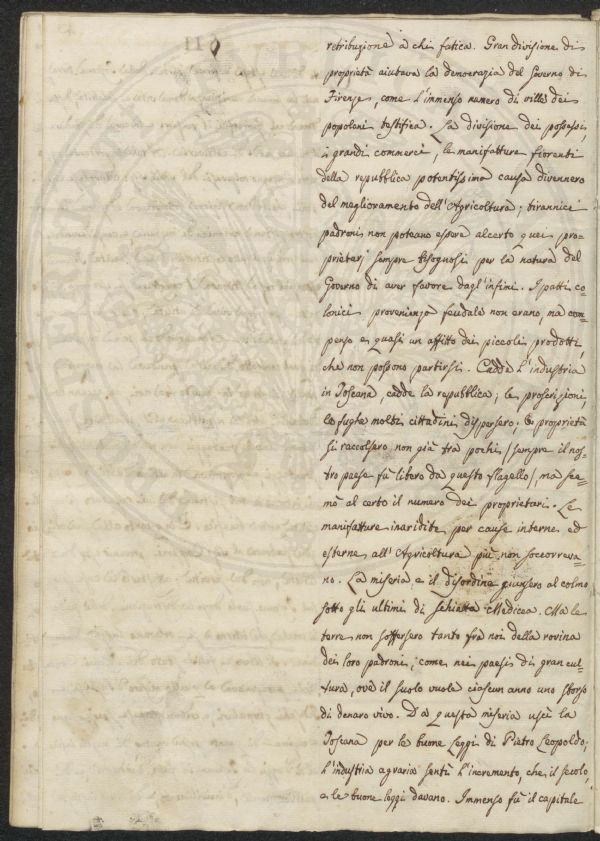 retribuzione a chi fatica. Gran divisione di
proprietà aiutava la democrazia del Governo di
Firenze, come l'immenso numero di ville dei
popolani testifica. La divisione dei possessi,
i grandi commerci, le manifatture fiorenti
della repubblica potentissima causa divennero
del miglioramento dell'Agricoltura; tirannici
padroni non poteano essere alcerto quei pro=
prietarj sempre bisognosi per la natura del
Governo di aver favore dagl'infimi. I patti co=
lonici provenienza feudale non erano, ma com=
penso e quasi un affitto dei piccoli prodotti,
che non possono partirsi. Cadde l'industria
in Toscana, cadde la repubblica; le proscrizioni,
le fughe molti cittadini dispersero. Le proprietà
si raccolsero non già tra pochi (sempre il nos=
tro paese fù libero da questo flagello) ma sce=
mò al certo il numero dei proprietari. Le
manifatture inaridite per cause interne ed
esterne all'Agricoltura più non soccorreva=
no. La miseria e il disordine giunsero al colmo
sotto gli ultimi di schiatta Medicea. Ma le
terre non soffersero tanto frà noi della rovina
dei loro padroni, come nei paesi di gran cul=
tura, ove il suolo vuole ciascun anno uno sborso
di denaro vivo. Da questa miseria uscì la
Toscana per le buone Leggi di Pietro Leopoldo;
l'industria agraria sentì l'incremento, che il secolo,
e le buone leggi davano. Immenso fù il capitale